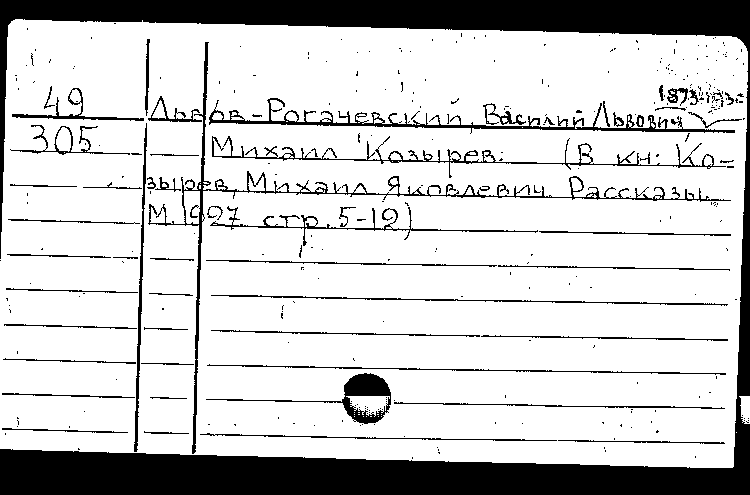 1873-1930
49 Львов-Рогачевский, Василий Львович
305 Михаил Козырев. (В кн: Ко-
зырев, Михаил Яковлевич. Рассказы.
М. 1927 стр. 5-12)